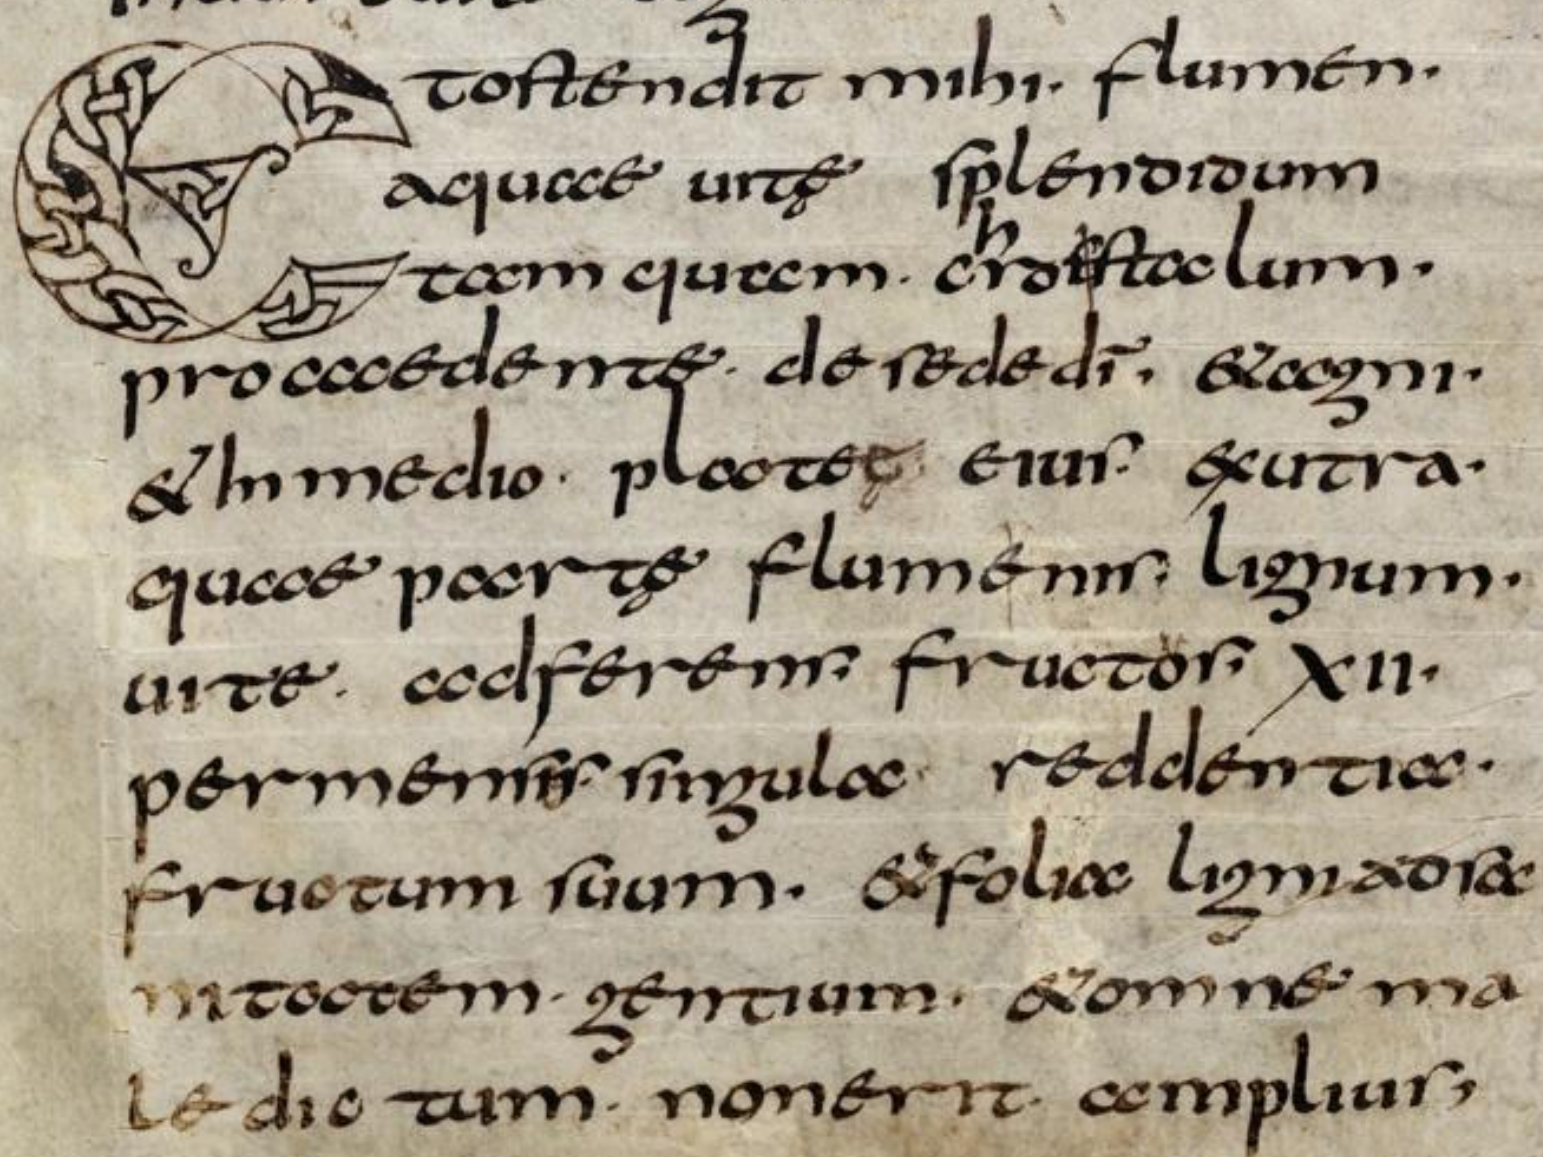 Et ostendit mihi · flumen ·
aquae uitę splendidum
tam quam · christallum ·
procedente · de sede dī · & agni ·
& in medio · plateę eius · ex utra ·
quae partę fluminis · lignum ·
uite · adferens · fructos · XII ·
per mensis singula · reddentia ·
fructum suum · & folia ligni ad sa
nitatem · gentium · & omne ma
ledictum · non erit · amplius ·